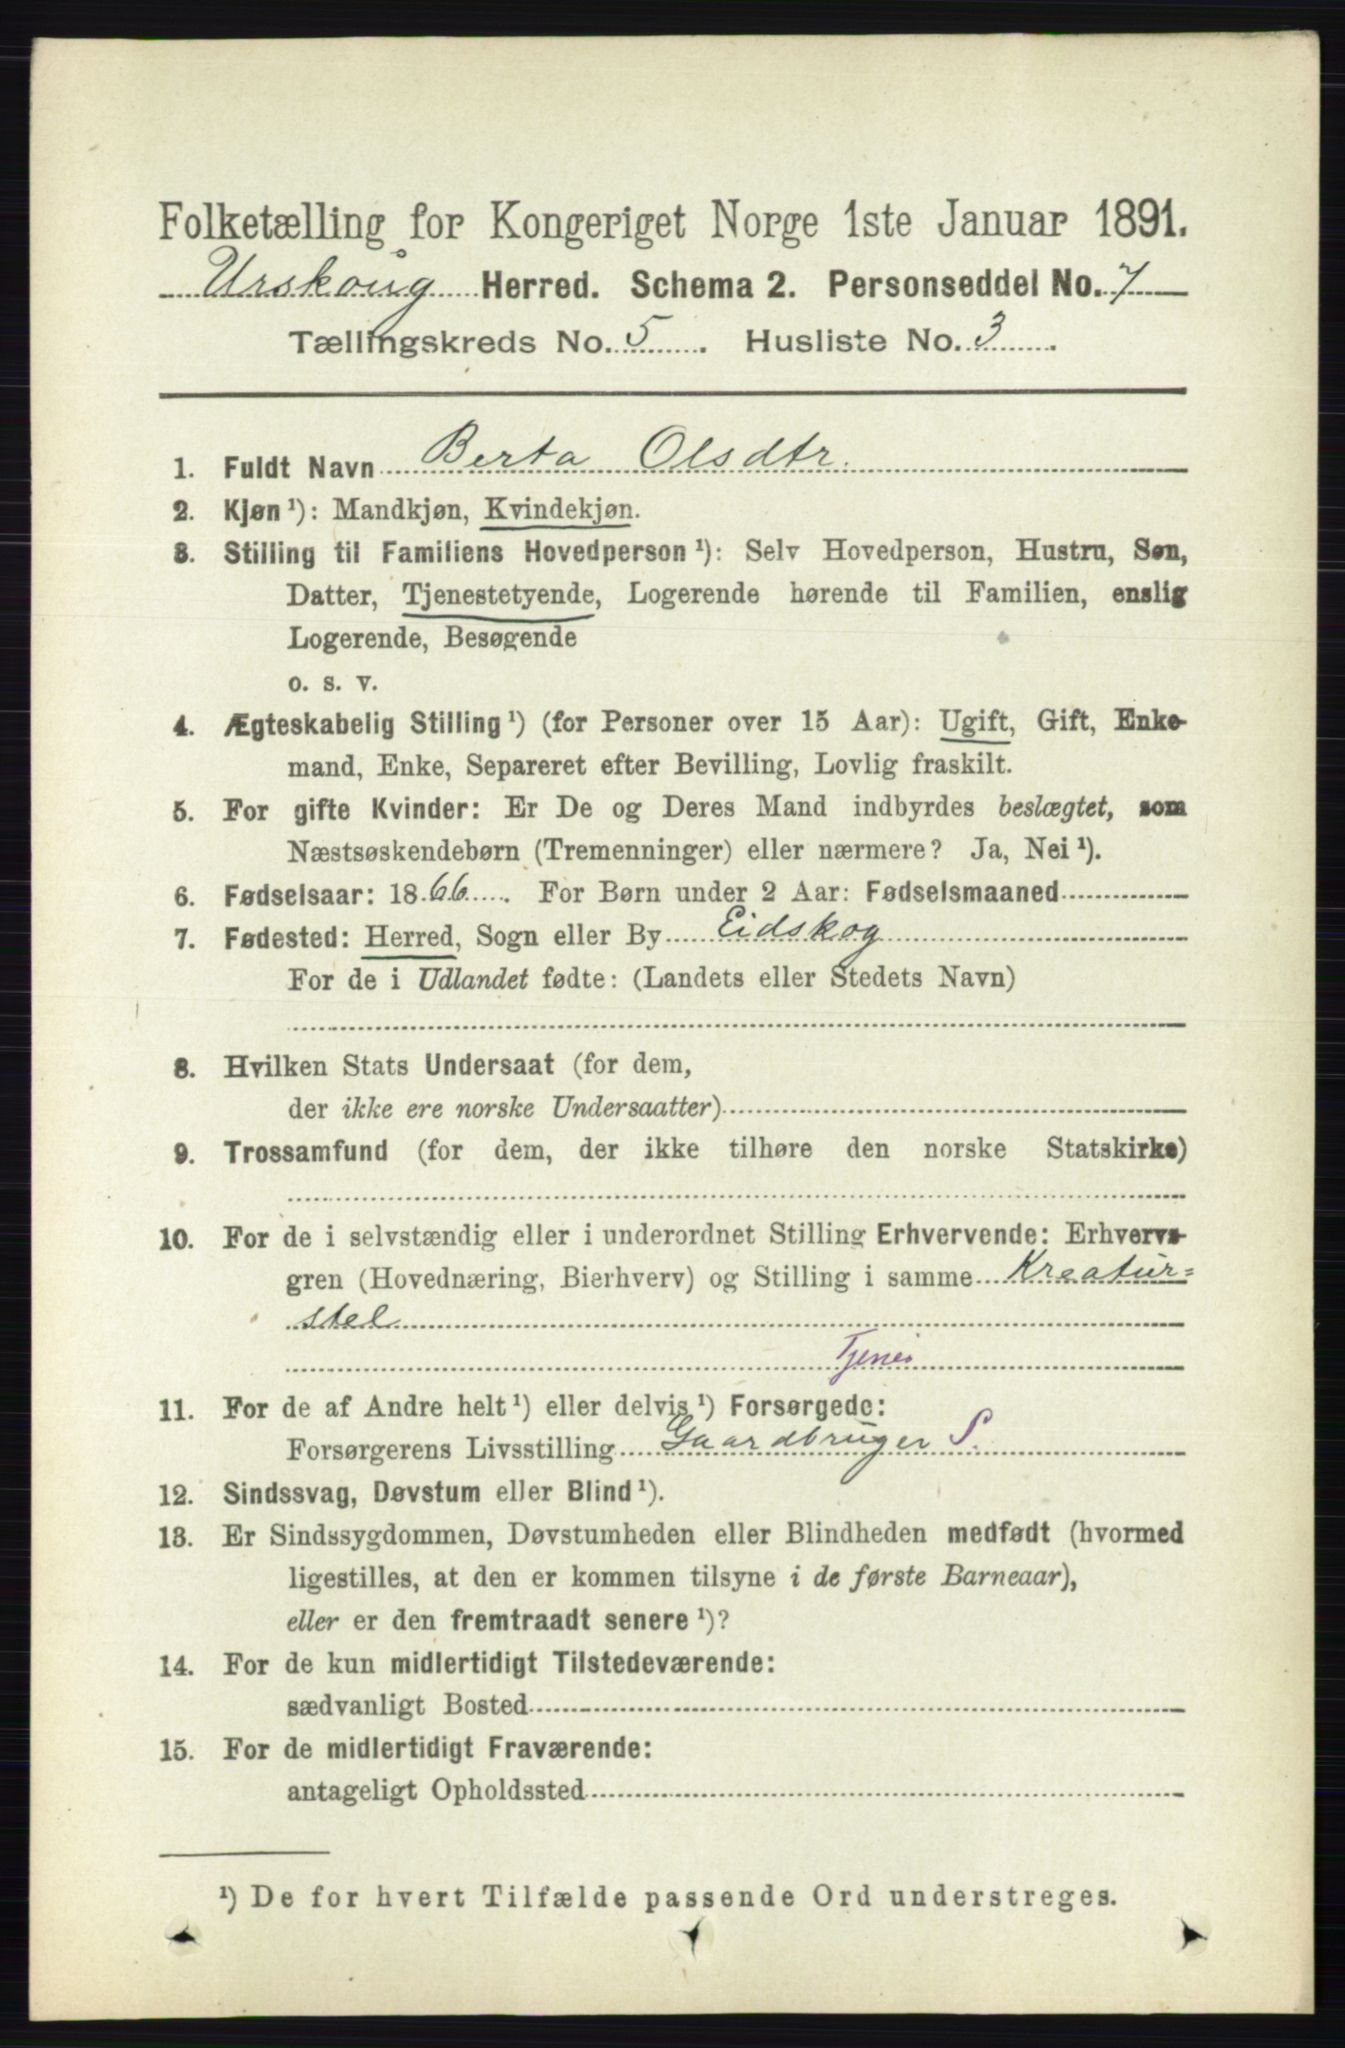 Folketælling for Kongeriget Norge 1ste Januar 1891.
Urskoug Herred. Schema 2. Personseddel No. 7
Tællingskreds No. 5. Husliste No. 3.
1. Fuldt Navn Berta Olsdtr.
2. Kjøn¹): Mandkjøn, Kvindekjøn.
3. Stilling til Familiens Hovedperson¹): Selv Hovedperson, Hustru, Søn,
Datter, Tjenestetyende, Logerende hørende til Familien, enslig
Logerende, Besøgende
o. s. v.
4. Ægteskabelig Stilling¹) (for Personer over 15 Aar): Ugift, Gift, Enke-
mand, Enke, Separeret efter Bevilling, Lovlig fraskilt.
5. For gifte Kvinder: Er De og Deres Mand indbyrdes beslægtet, som
Næstsøskendebørn (Tremenninger) eller nærmere? Ja, Nei¹).
6. Fødselsaar: 1866. For Børn under 2 Aar: Fødselsmaaned
7. Fødested: Herred, Sogn eller By Eidskog
For de i Udlandet fødte: (Landets eller Stedets Navn)
8. Hvilken Stats Undersaat (for dem,
der ikke ere norske Undersaatter)
9. Trossamfund (for dem, der ikke tilhøre den norske Statskirke)
10. For de i selvstændig eller i underordnet Stilling Erhvervende: Erhvervs-
gren (Hovednæring, Bierhverv) og Stilling i samme Kreatur=
stel
Tjenes
11. For de af Andre helt¹) eller delvis¹) Forsørgede:
Forsørgerens Livsstilling Gaardbruger S.
12. Sindssvag, Døvstum eller Blind¹).
13. Er Sindssygdommen, Døvstumheden eller Blindheden medfødt (hvormed
ligestilles, at den er kommen tilsyne i de første Barneaar),
eller er den fremtraadt senere¹)?
14. For de kun midlertidigt Tilstedeværende:
sædvanligt Bosted
15. For de midlertidigt Fraværende:
antageligt Opholdssted
¹) De for hvert Tilfælde passende Ord understreges.